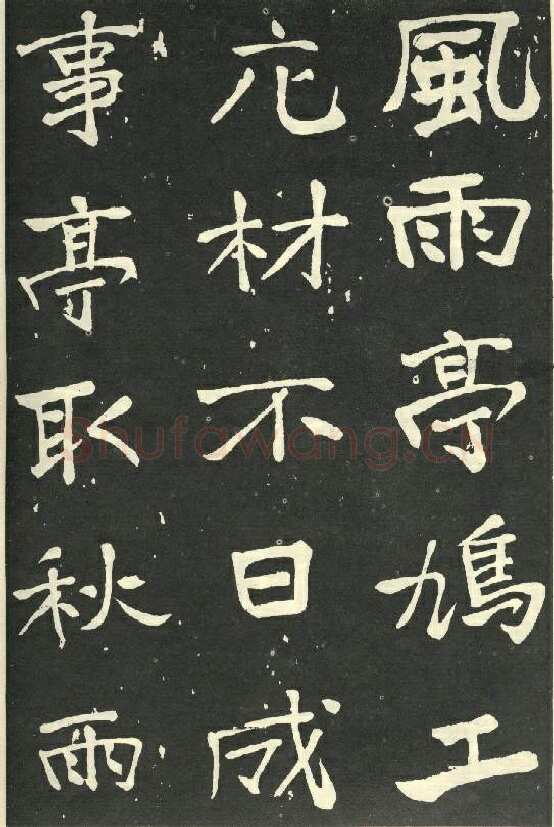 風雨亭鳩工
庀材不日成
事亭取秋雨
Shufawang.cn